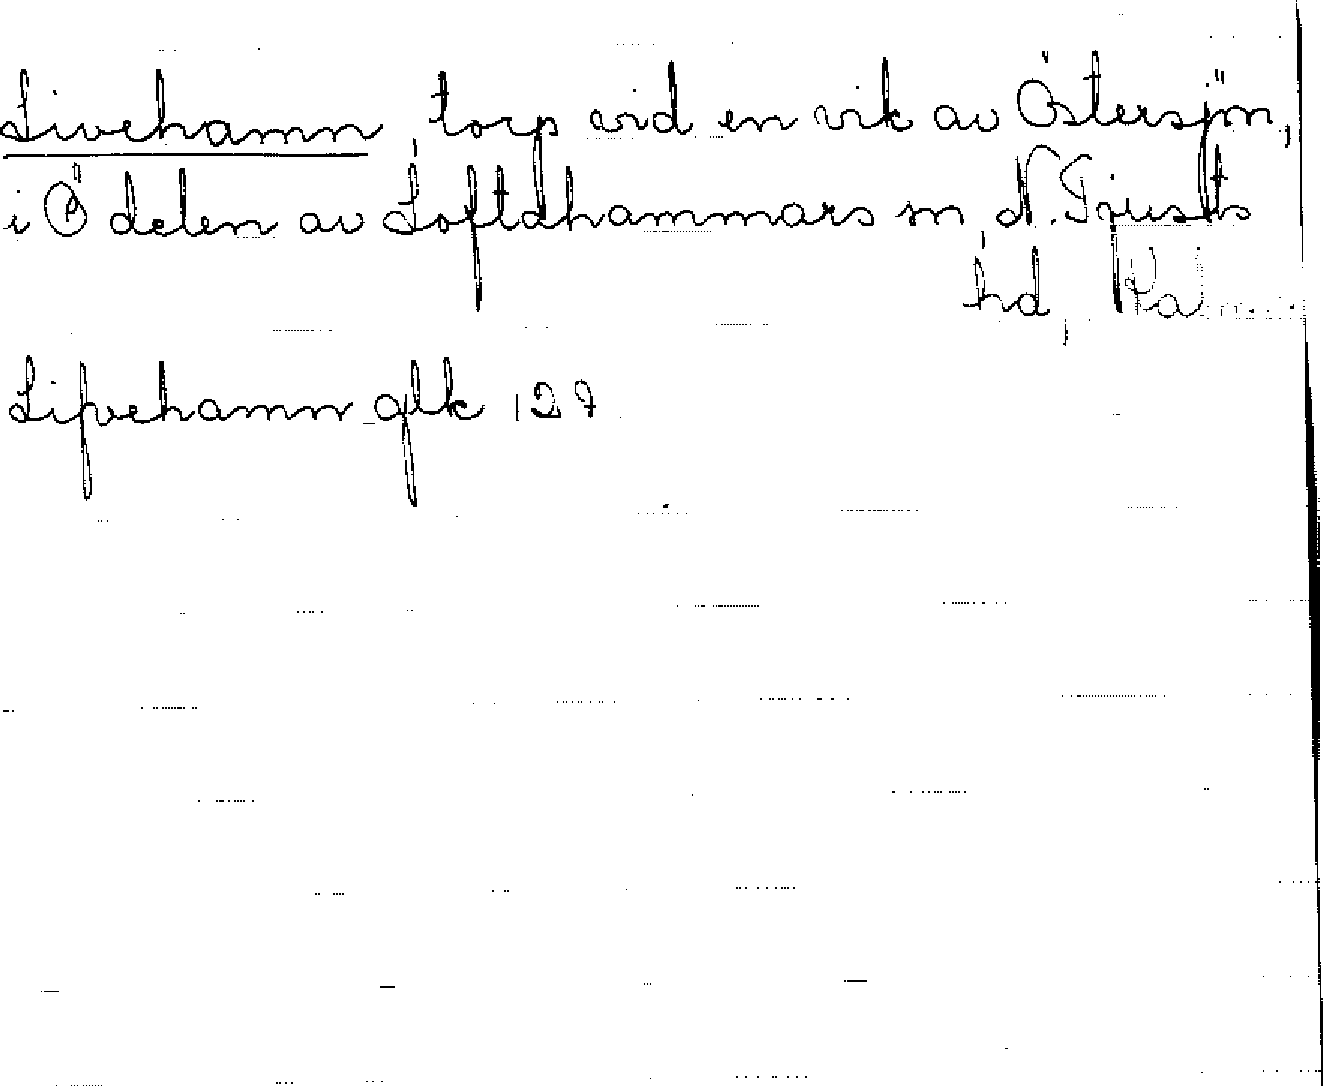 Livehamn, torp vid en vik av Östersjön,
i Ö delen av Loftahammars sn, N. Tjusts
hd, Kalm
Lifvehamn glk 127